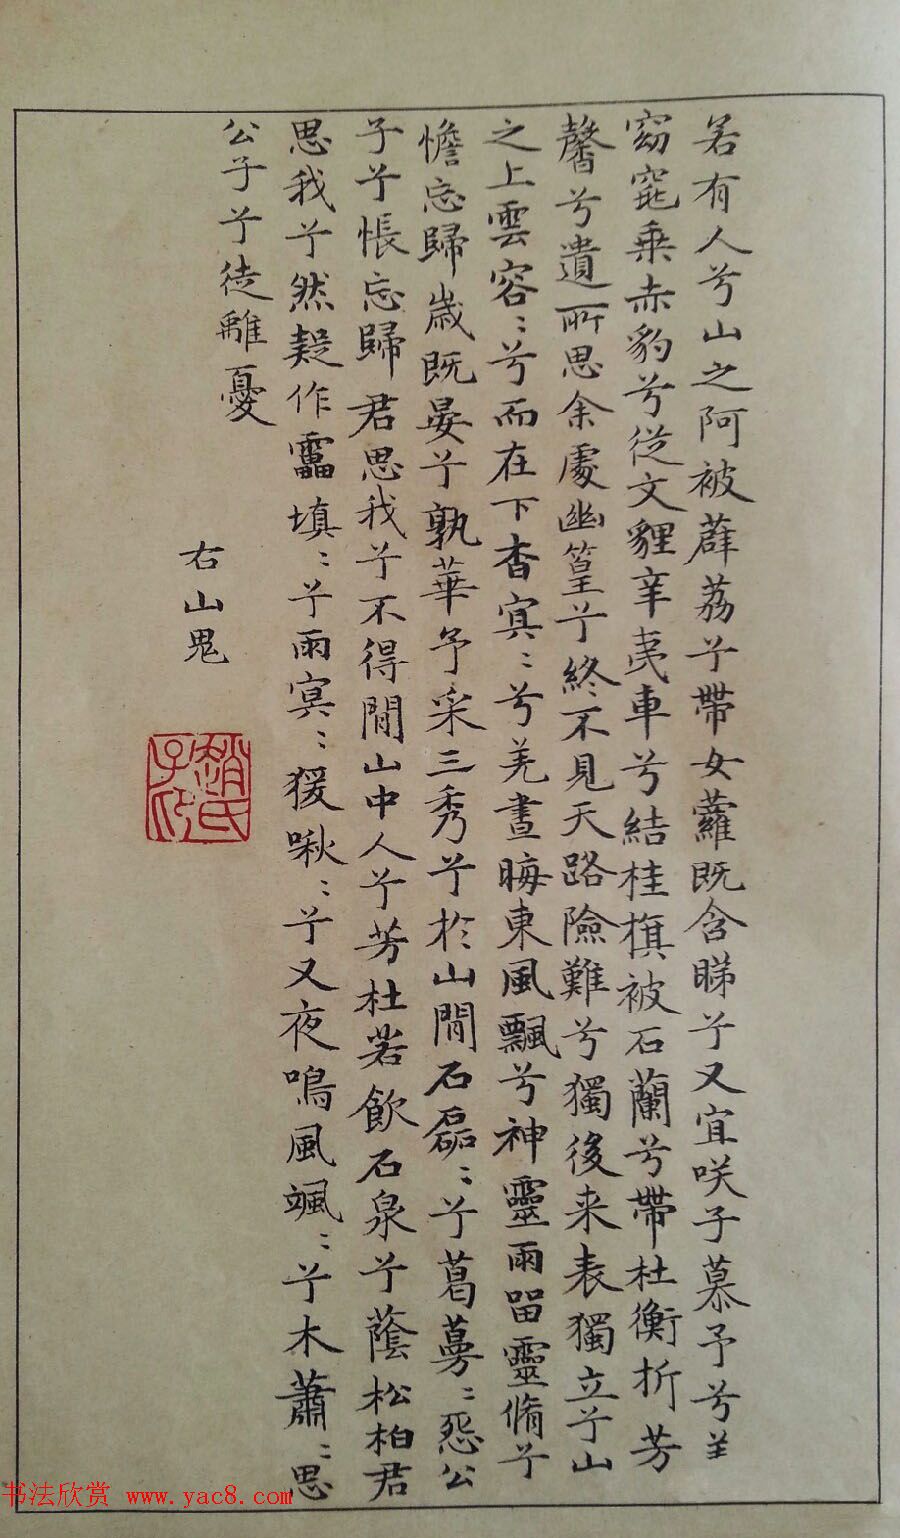 若有人兮山之阿被薜荔兮帶女蘿既含睇兮又宜咲子慕予兮善
窈窕乘赤豹兮從文貍辛夷車兮結桂旗被石蘭兮帶杜衡折芳
馨兮遺所思余處幽篁兮終不見天路險難兮獨後来表獨立兮山
之上雲容:兮而在下杳冥:兮羌晝晦東風飄兮神靈雨留靈脩兮
憺忘歸歲既晏兮孰華予采三秀兮於山間石磊:兮葛蔓:怨公
子兮悵忘歸君思我兮不得閒山中人兮芳杜若飲石泉兮蔭松柏君
思我兮然疑作靁填:兮雨冥:猨啾:兮又夜鳴風颯:兮木蕭:思
公子兮徒離憂
右山鬼
趙氏子昂
书法欣赏 www.yac8.com